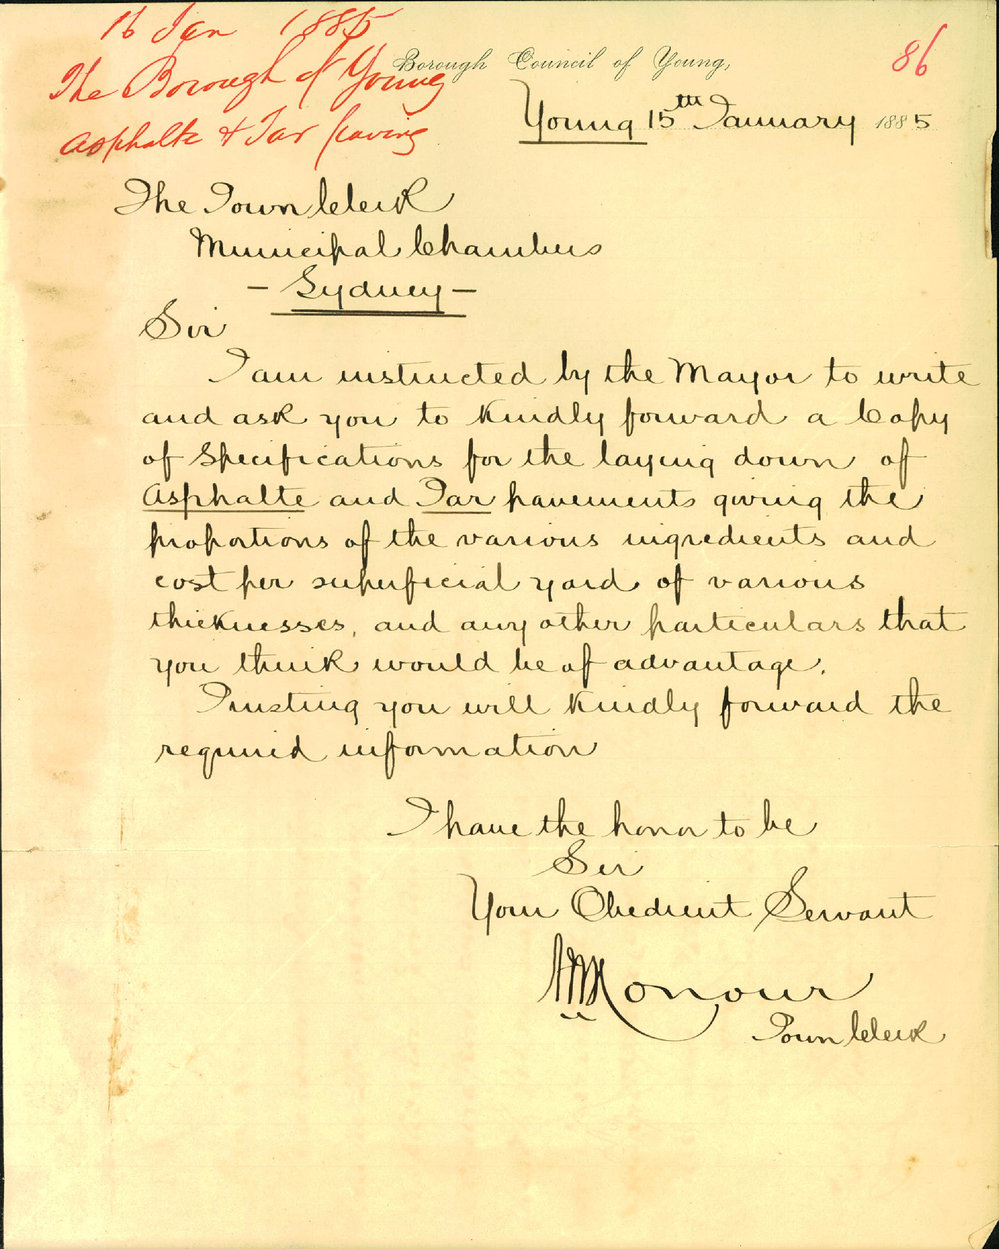 16 Jan 1885
The Borough of Young
Asphalte & Tar paving
86
Borough Council of Young,
Young 15th January 1885
The Town Clerk
Municipal Chambers
- Sydney -
Sir
I am instructed by the Mayor to write
and ask you to kindly forward a Copy
of Specifications for the laying down of
Asphalte and Tar pavements giving the
proportions of the various ingredients and
cost per superficial yard of various
thicknesses, and any other particulars that
you think would be of advantage.
Trusting you will kindly forward the
required information
I have the honor to be
Sir
Your Obedient Servant
Town Clerk